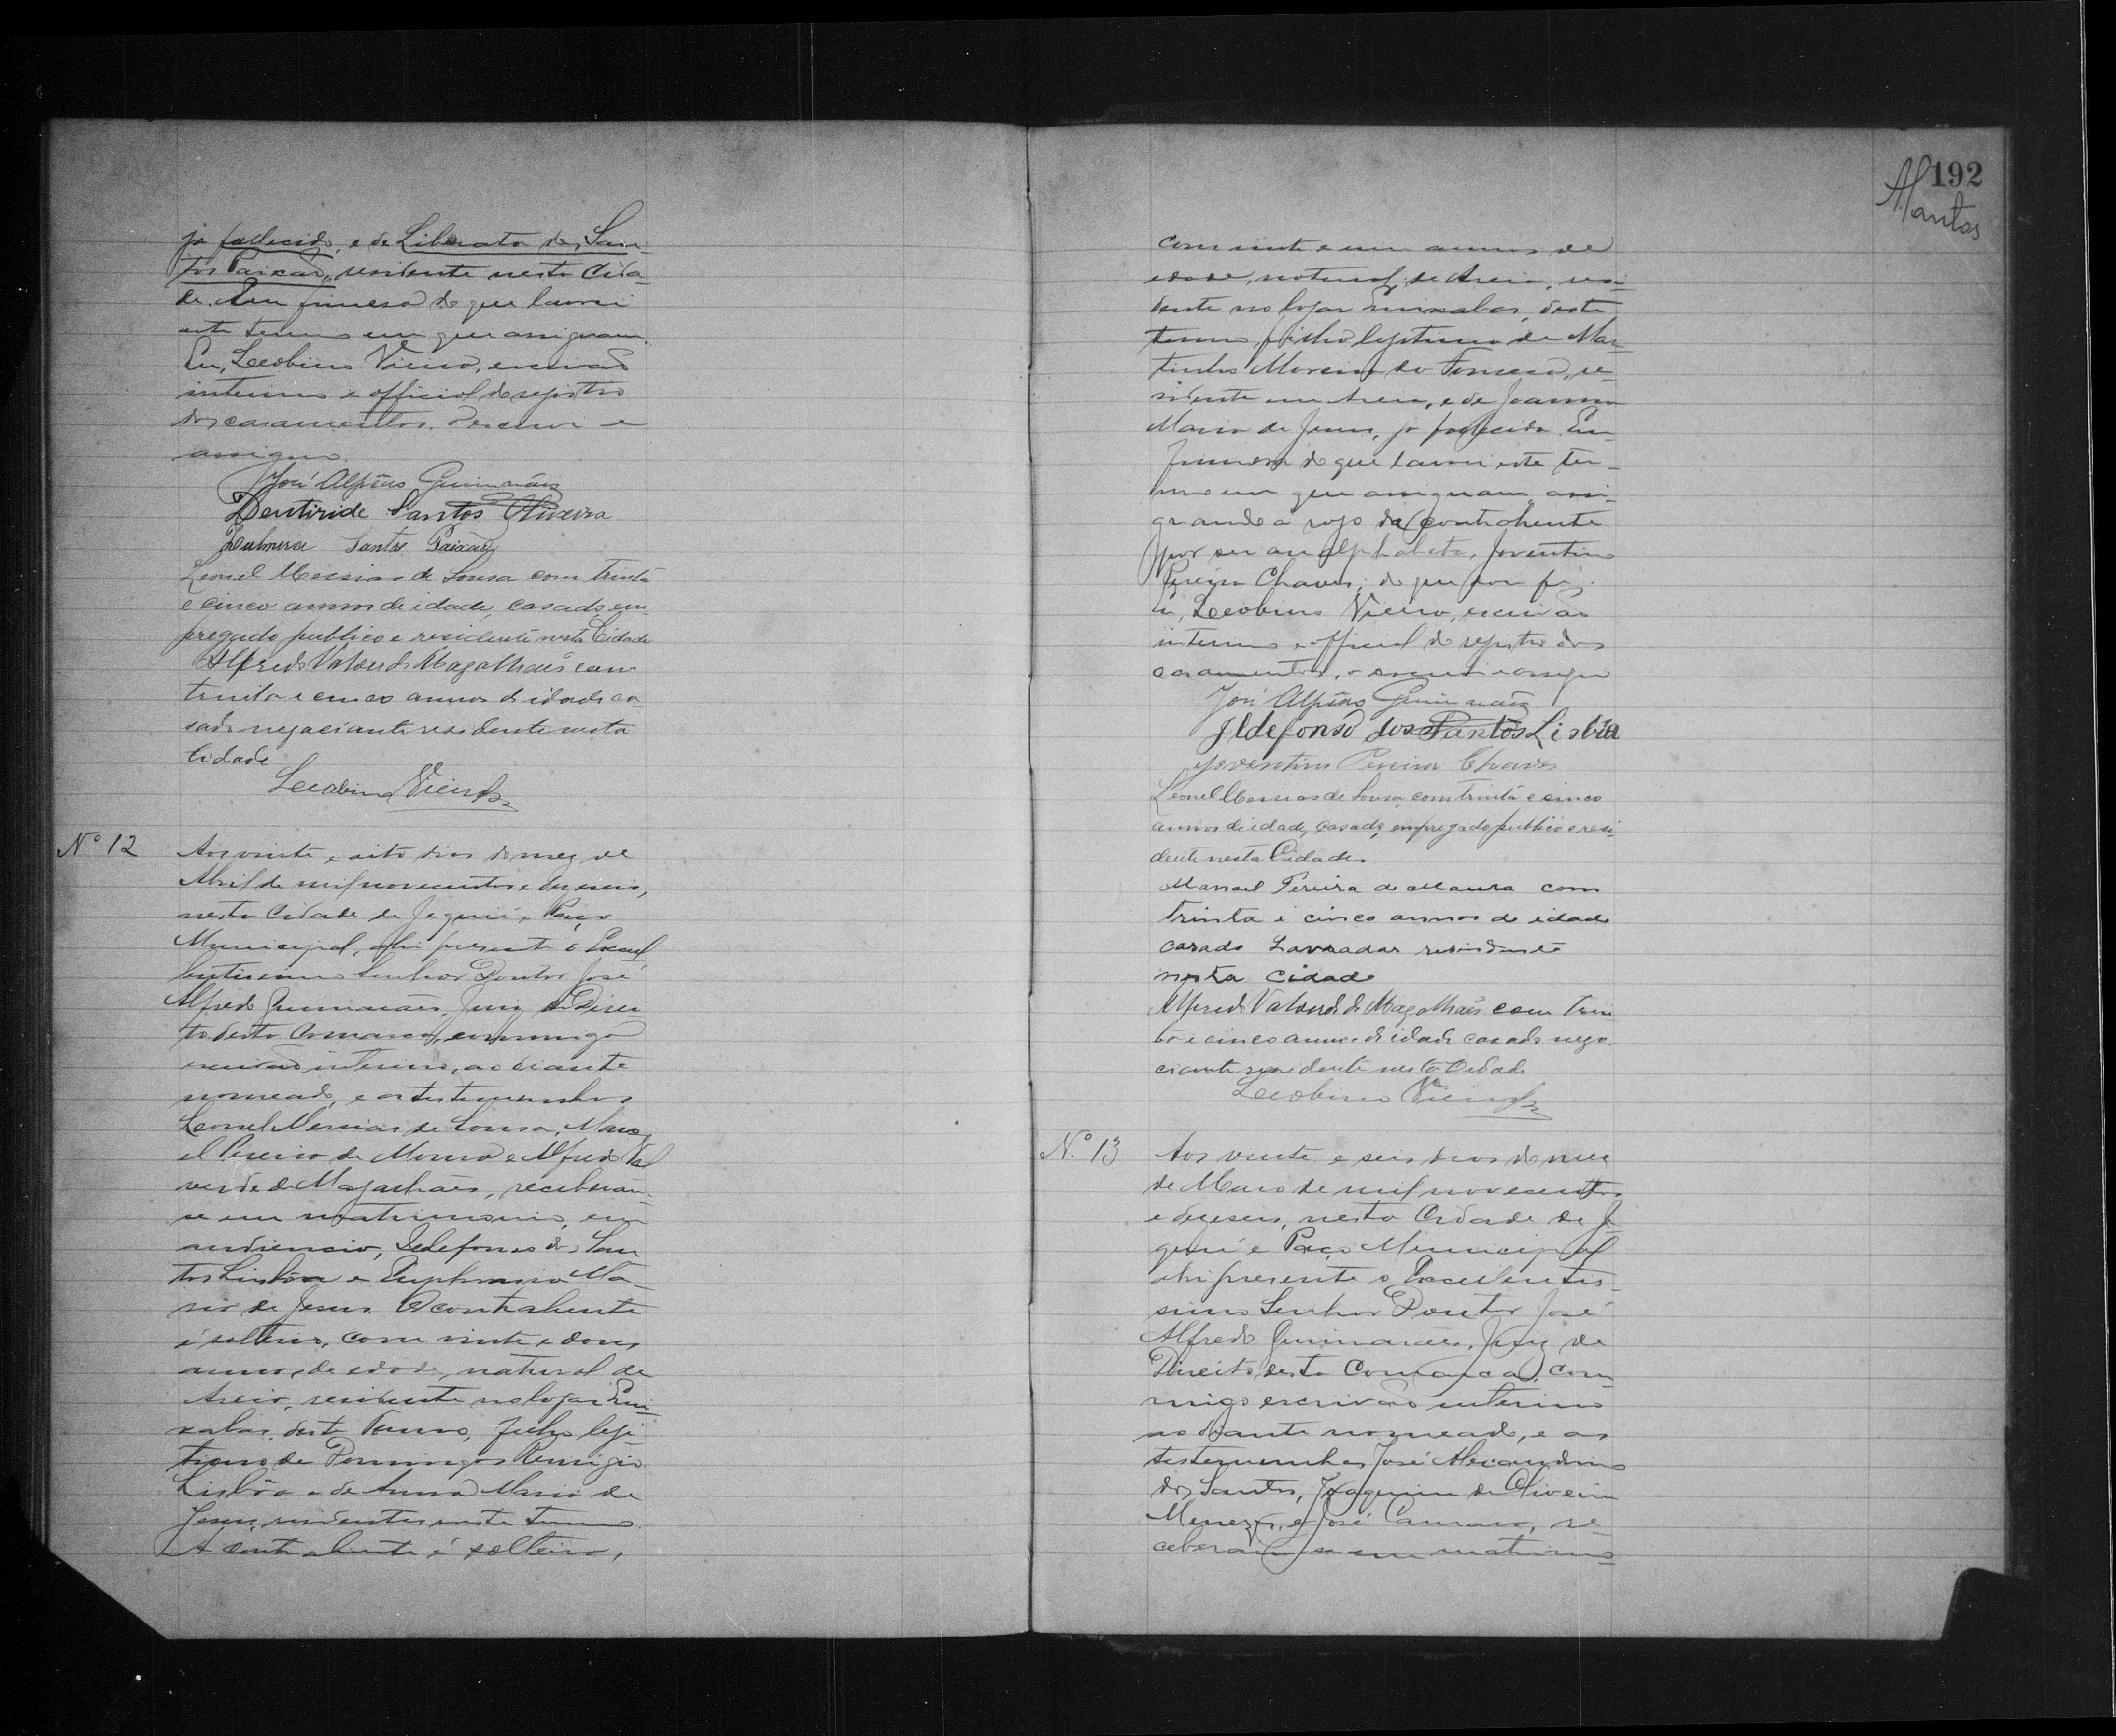 já fallecido, e de Liberata dos San-
tos Paixão, residente nesta Cida-
de. Em firmesa do que lavrei
este termo em que assignam.
Eu, Leobino Vieira, escrivão
interino e official do registro
dos casamentos, o escrevi e
assigno.
José Alfredo Guimarães
Deutiride Santos Oliveira
Santos Paixão
Leonel Messias de Sousa com trinta
e cinco annos de idade, casado, em-
pregado publico e residente nesta Cidade
Alfredo Valverde Magalhães com
trinta e cinco annos de idade ca-
sado negociante residente nesta
Cidade
Leobino Vieira
Nº 12
Aos vinte e oito dias do mez de
Abril de mil novecentos e dezeseis,
nesta Cidade de Jequié e Paço
Municipal, ahi presente o Excel-
lentissimo Senhor Doutor José
Alfredo Guimarães, Juiz de Direi-
to desta Comarca, commigo
escrivão interino, ao diante
nomeado, e as testemunhas
Leonel Messias de Sousa, Mano-
el Pereira de Moura e Alfredo Val-
verde de Magalhães, receberam-
se em matrimonio, em
audiencia, Ildefonso dos San-
tos Lisbôa e Euphrasia Ma-
ria de Jesus. O contrahente
é solteiro, com vinte e dous
annos de edade, natural de
Areia, residente no logar Em-
xabas, deste Termo, filho legi-
timo de Domingos Remigio
Lisbôa e de Anna Maria de
Jesus, residentes neste termo.
A contrahente é solteira,
192
Santos
com vinte e um annos de
edade, natural de Areia, resi-
dente no logar Emxabas, deste
termo, filha legitima de Mar-
tinho Moreira da Fonseca, re-
sidente em Areia, e de Joanna
Maria de Jesus, já fallecida. Em
firmesa do que lavrei este ter-
mo em que assignam, assi-
gnando a rogo da contrahente
por ser analphabeta, Joventino
Pereira Chaves; do que dou fé.
Eu, Leobino Vieira, escrivão
interino e official do registro dos
casamentos, o escrevi e assigno
José Alfredo Guimarães
Ildefonso dos Santos Lisbôa
Joventino Pereira Chaves
Leonel Messias de Sousa, com trinta e cinco
annos de idade, casado, empregado publico e resi-
dente nesta Cidade.
Manoel Pereira de Maura com
trinta e cinco annos de idade
casado Lavrador residente
nesta Cidade
Alfredo Valverde de Magalhães com trin
ta e cinco annos de idade casado nego
ciante residente nesta Cidade
Leobino Vieira
Nº 13
Aos vinte e seis dias do mez
de Maio de mil novecentos
e dezeseis, nesta Cidade de Je-
quié e Paço Municipal
ahi presente o Excellentis-
simo Senhor Doutor José
Alfredo Guimarães, Juiz de
Direito desta Comarca, com-
migo escrivão interino
ao diante nomeado, e as
testemunhas José Alexandrino
dos Santos, Joaquim de Oliveira
Menezes, e José Camara, re-
ceberam-se em matrimo-